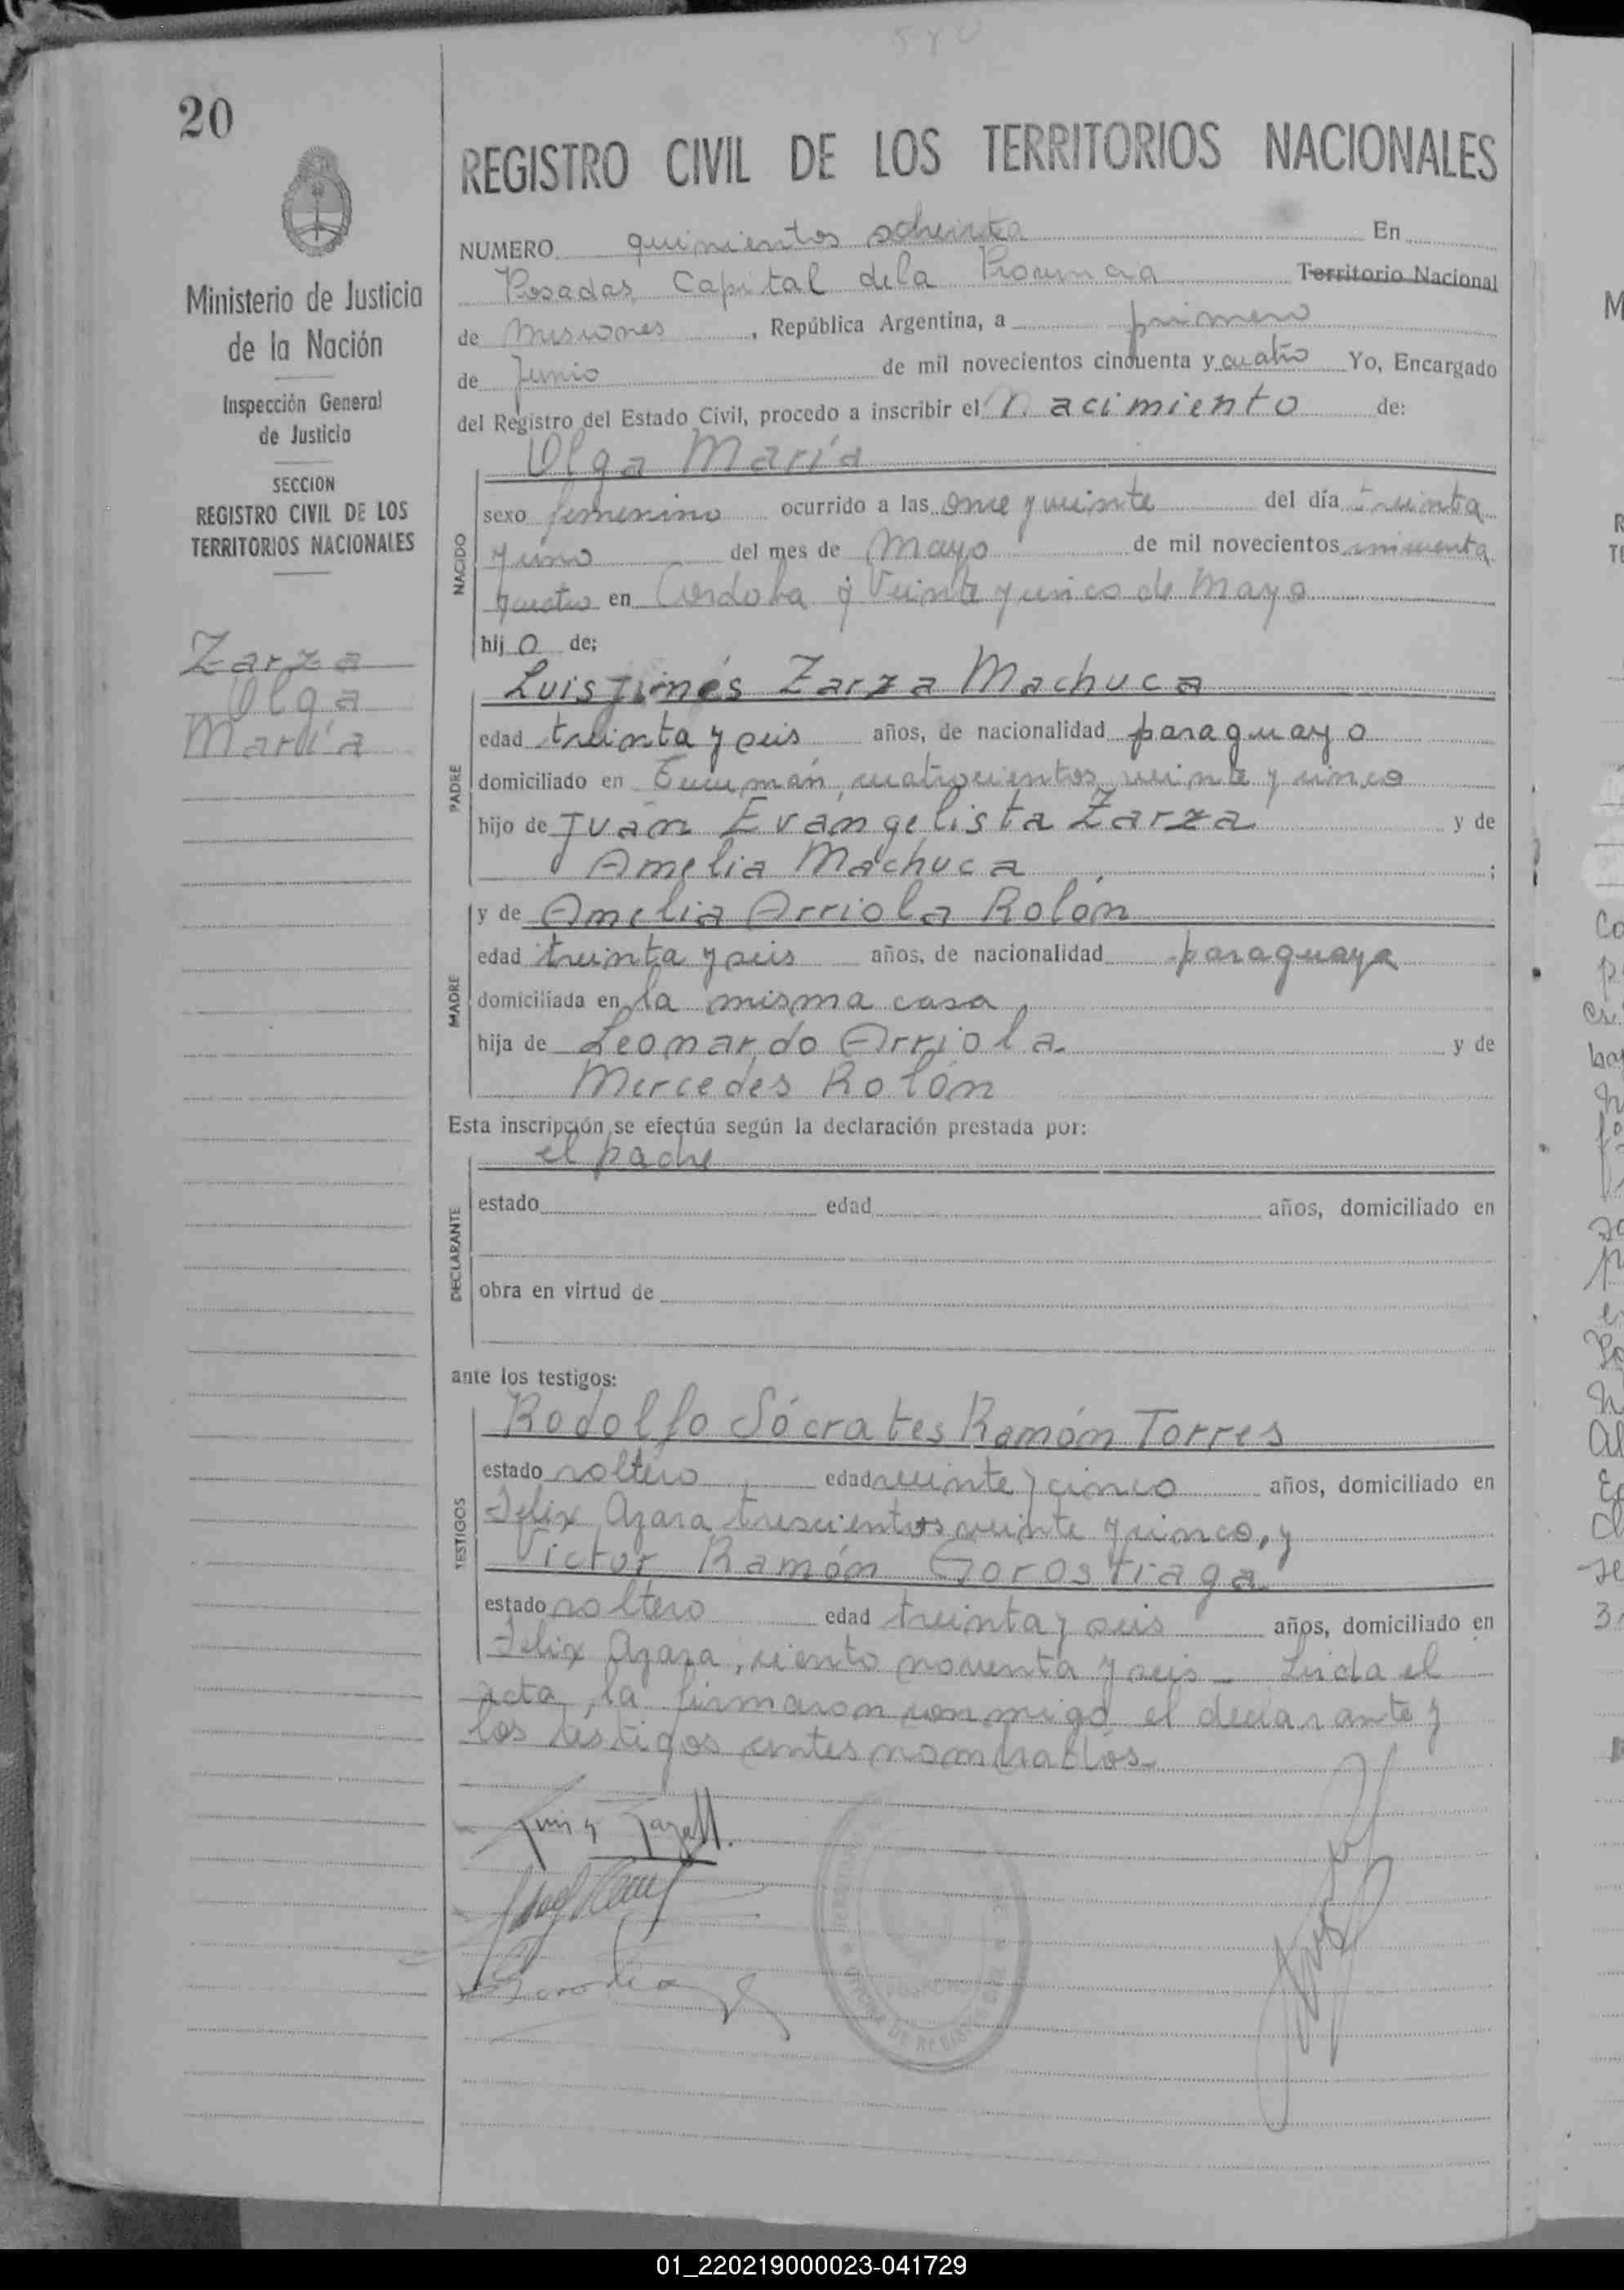 580
20
REGISTRO CIVIL DE LOS TERRITORIOS NACIONALES
Ministerio de Justicia
de la Nación
Inspección General
de Justicia
SECCION
REGISTRO CIVIL DE LOS
TERRITORIOS NACIONALES
Zarza
Olga
María
NUMERO quinientos ochenta En
Posadas Capital de la Provincia Territorio Nacional
de Misiones, República Argentina, a primero
de Junio de mil novecientos cincuenta y cuatro Yo, Encargado
del Registro del Estado Civil, procedo a inscribir el Nacimiento de:
Olga María
NACIDO
sexo femenino ocurrido a las once y veinte del día treinta
y uno del mes de Mayo de mil novecientos cincuenta
y cuatro en Cordoba y Veinte y cinco de Mayo
hij o de;
Luis Zarza Machuca
PADRE
edad treinta y seis años, de nacionalidad paraguayo
domiciliado en Tucumán, cuatrocientos veinte y cinco
hijo de Juan Evangelista Zarza y de
Amelia Machuca ;
MADRE
y de Amelia Arriola Rolón
edad treinta y seis años, de nacionalidad paraguaya
domiciliada en la misma casa,
hija de Leonardo Arriola. y de
Mercedes Rolón
Esta inscripción se efectúa según la declaración prestada por:
el padre
DECLARANTE
estado edad años, domiciliado en
obra en virtud de
ante los testigos:
Rodolfo Sócrates Ramón Torres
TESTIGOS
estado soltero edad veinte y cinco años, domiciliado en
Felix Azara trescientos veinte y cinco, y
Victor Ramón Gorostiaga
estado soltero edad treinta y seis años, domiciliado en
Felix Azara, ciento noventa y seis - Leida el
acta, la firmaron conmigo el declarante y
los testigos antes nombrados.-
01_220219000023-041729